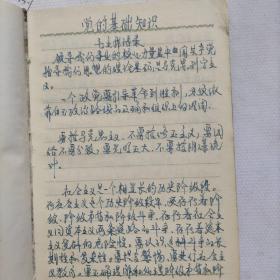 党的基础知识
毛主席语录
领导我们事业的核心力量是中国共产党
指导我们思想的理论基础是马克思列宁主
义。
一个政党要引导革命到胜利，必须依
靠自己政治路线的正确和组织上的巩固。
要搞马克思主义，不要搞修正主义；要团
结，不要分裂；要光明正大，不要搞阴谋诡
计。
社会主义是一个相当长的历史阶段。
在社会主义这个历史阶段中，还存在着阶
级、阶级矛盾和阶级斗争，存在着社会主
义同资本主义两条道路的斗争，存在着资本
主义复辟的危险性。要认识这种斗争的长
期性和复杂性。要提高警惕。要进行社会
主义教育。要正确理解和处理阶级矛盾和阶